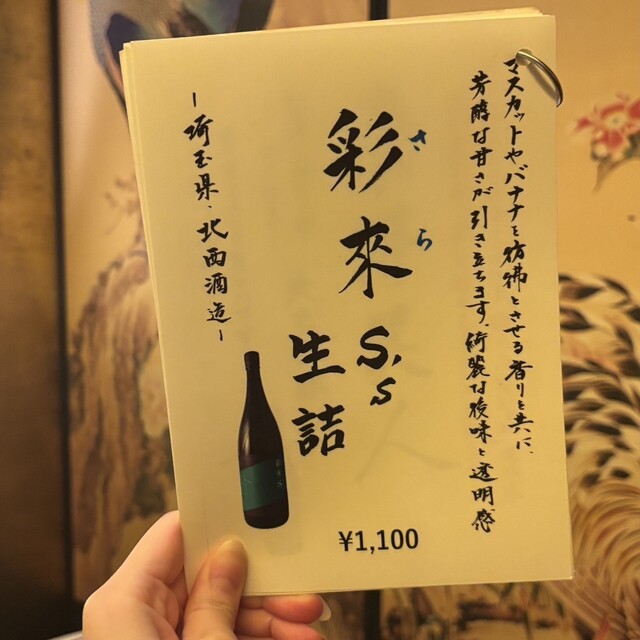 マスカットやバナナを彷彿とさせる香りと共に、
芳醇な甘さが引き立ちます。綺麗な後味と透明感
彩來 S,s
さら
生詰
ー埼玉県・北西酒造ー
¥1,100